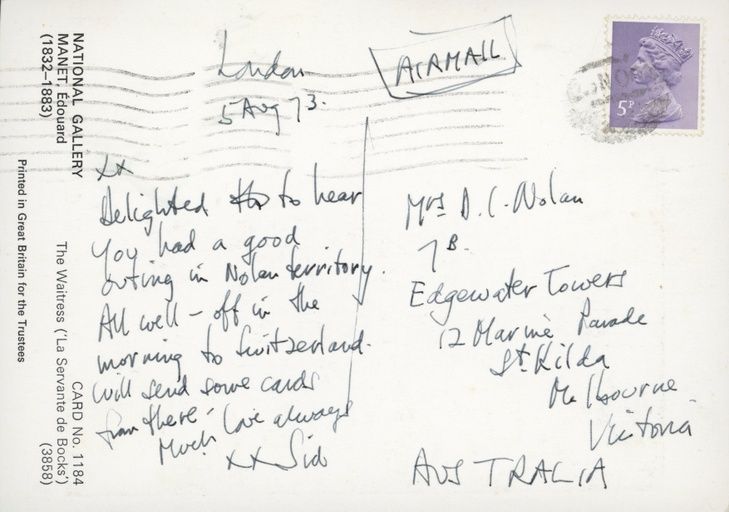 NATIONAL GALLERY
MANET, Edouard
(1832–1883)
Printed in Great Britain for the Trustees
CARD No. 1184
The Waitress ('La Servante de Bocks')
(3858)
London
5 Aug 73.
xx
Delighted to hear
You had a good
outing in Nolan territory.
All well – off in the
morning to Switzerland.
Will send some cards
from there –
Much love always
xx Sid
AIRMAIL
5P
Mrs D. C. Nolan
7B.
Edgewater Towers
12 Marine Parade
St. Kilda
Melbourne
Victoria
AUSTRALIA